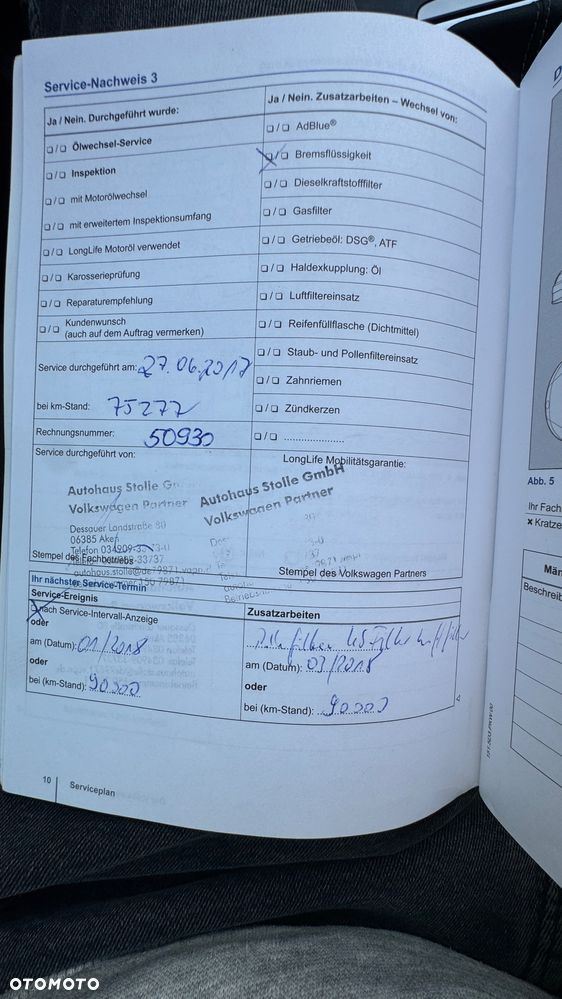 Service-Nachweis 3
Ja / Nein. Durchgeführt wurde:
Ja / Nein. Zusatzarbeiten – Wechsel von:
❏/❏ Ölwechsel-Service
❏/❏ AdBlue®
❏/❏ Inspektion
❏/❏ Bremsflüssigkeit
❏/❏ mit Motorölwechsel
❏/❏ Dieselkraftstofffilter
❏/❏ mit erweitertem Inspektionsumfang
❏/❏ Gasfilter
❏/❏ LongLife Motoröl verwendet
❏/❏ Getriebeöl: DSG®, ATF
❏/❏ Karosserieprüfung
❏/❏ Haldexkupplung: Öl
❏/❏ Reparaturempfehlung
❏/❏ Luftfiltereinsatz
❏/❏ Kundenwunsch
(auch auf dem Auftrag vermerken)
❏/❏ Reifenfüllflasche (Dichtmittel)
❏/❏ Staub- und Pollenfiltereinsatz
Service durchgeführt am: 27.06.2017
❏/❏ Zahnriemen
bei km-Stand: 75277
❏/❏ Zündkerzen
Rechnungsnummer: 50930
❏/❏ .....................
Service durchgeführt von:
LongLife Mobilitätsgarantie:
Autohaus Stolle
Volkswagen Partner
Dessauer Landstraße 80
06385 Aken
Telefon
Autohaus Stolle GmbH
Volkswagen Partner
Stempel des Fachbetriebs
Stempel des Volkswagen Partners
Ihr nächster Service-Termin
Service-Ereignis
Zusatzarbeiten
❏ nach Service-Intervall-Anzeige
oder
am (Datum): 01/2018
am (Datum): 03/2018
oder
oder
bei (km-Stand): 90000
bei (km-Stand): 90000
10
Serviceplan
Abb. 5
Ihr Fach
× Kratze
Män
Beschreib
OTOMOTO